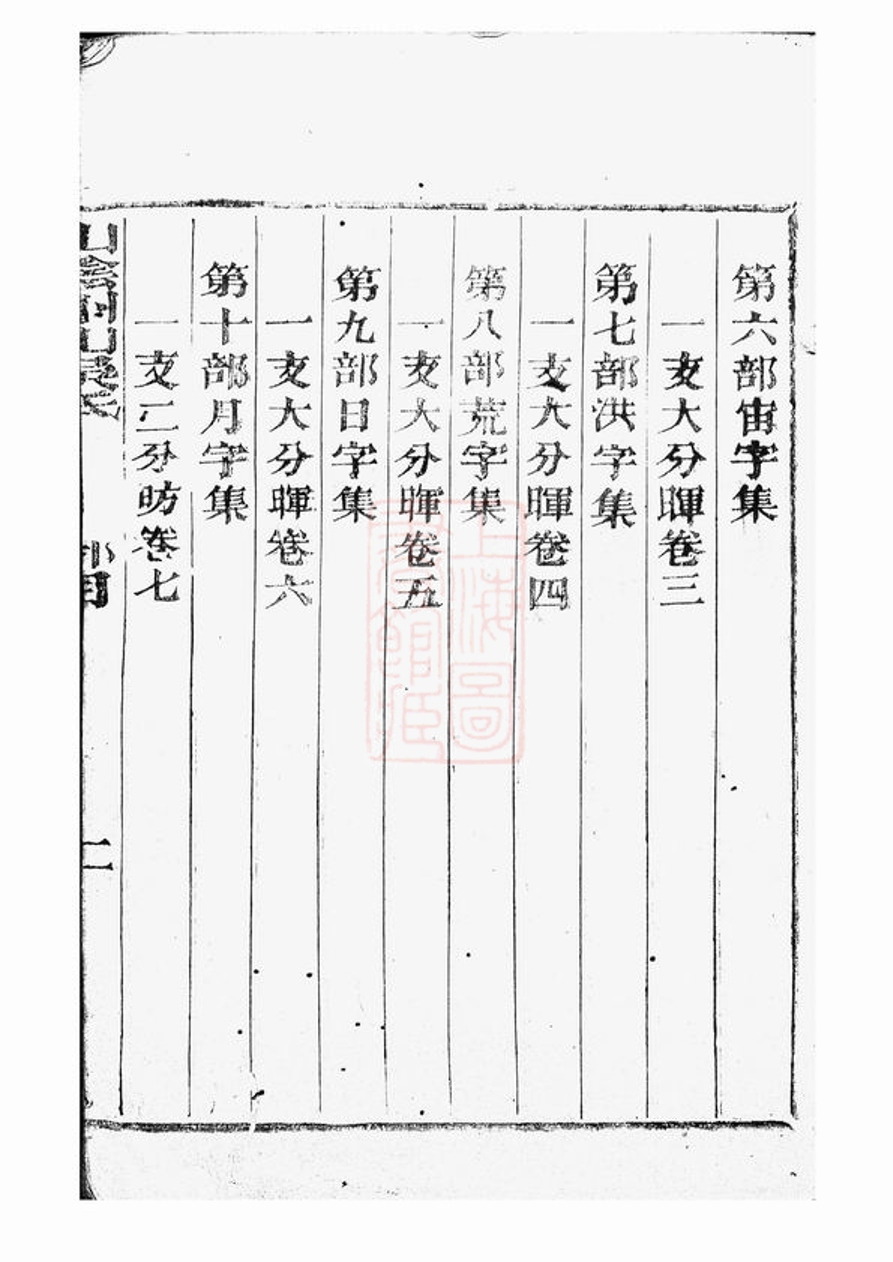 第六部宙字集
一支大分暉卷三
第七部洪字集
一支大分暉卷四
第八部荒字集
一支大分暉卷五
第九部日字集
一支大分暉卷六
第十部月字集
一支二分昉卷七
山陰州山吳氏
部目
二
上海圖
書館藏